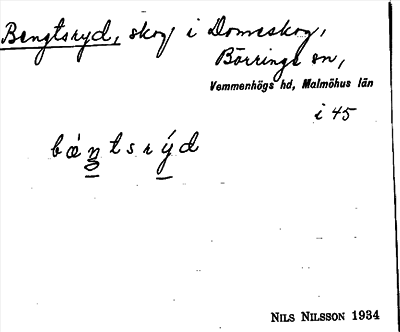 Bengtsryd, skog i Domeskog,
Börringe sn,
Vemmenhögs hd, Malmöhus län
i 45
bæ̀ŋtsrýd
NILS NILSSON 1934